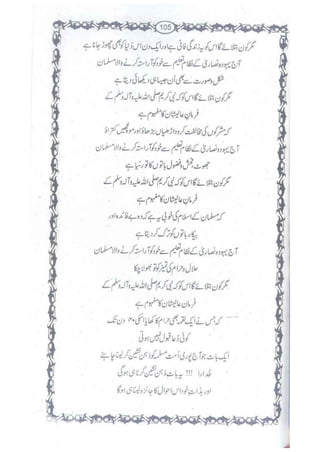 105
مگر کون بتلائے گا اس کو یہ زندگی فانی ہے اور ایک دن اس دُنیا کو بھی چھوڑ جانا ہے
آج یہود و نصاریٰ کے نظامِ تعلیم سے خود کو آراستہ کرنے والا مسلمان
شکل و صورت سے بھی اُن جیسا ہی دیکھائی دیتا ہے
مگر کون بتلائے گا اس کو کہ نبی کریم صلی اللہ علیہ وآلہ وسلم کے
فرمانِ عالیشان کا مفہوم ہے
کہ مشرکوں کی مخالفت کرو داڑھیاں بڑھاؤ اور مونچھیں کتراؤ
آج یہود و نصاریٰ کے نظامِ تعلیم سے خود کو آراستہ کرنے والا مسلمان
جھوٹ، فحش و فضول باتوں کا
مگر کون بتلائے گا اس کو کہ نبی کریم صلی اللہ علیہ وآلہ وسلم کے
فرمانِ عالیشان کا مفہوم ہے
کہ مسلمان کے اسلام کی خوبی یہ ہے کہ وہ بے فائدہ اور
بیکار باتوں کو ترک کر دیتا ہے
آج یہود و نصاریٰ کے نظامِ تعلیم سے خود کو آراستہ کرنے والا مسلمان
حلال و حرام کی تمیز کو بھولا چکا
مگر کون بتلائے گا اس کو کہ نبی کریم صلی اللہ علیہ وآلہ وسلم کے
فرمانِ عالیشان کا مفہوم ہے
کہ جس نے ایک لقمہ بھی حرام کا کھایا اسکی ۴۰ دن تک
کوئی دُعا قبول نہیں ہوتی
ایک بات جو آج پوری اُمت مسلمہ کو ذہن نشین کر لینا چاہئے
خدارا !!! یہ بات ذہن نشین کرنا ہی ہوگی
اور بذاتِ خود اس احوال کا جائزہ لینا ہی ہوگا